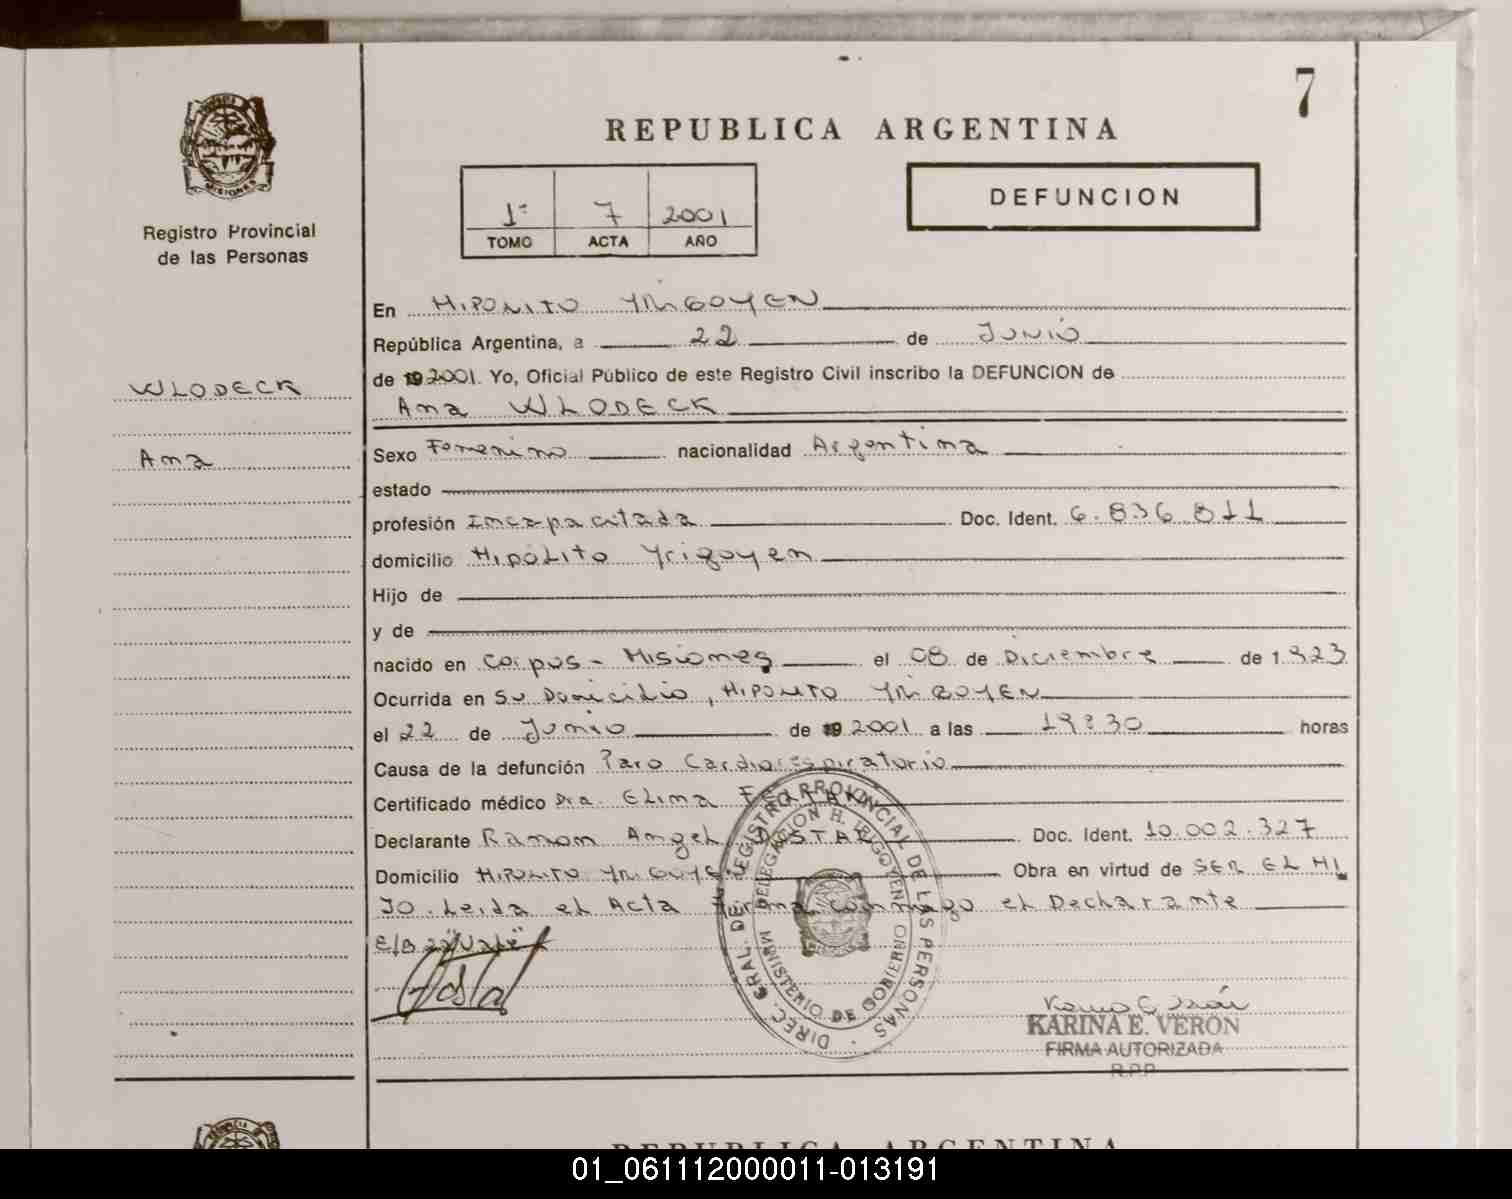 7
REPUBLICA ARGENTINA
DEFUNCION
1º 7 2001
TOMO ACTA AÑO
MISIONES
Registro Provincial
de las Personas
WLODECK
Ana
En HIPOLITO YRIGOYEN
República Argentina, a 22 de JUNIO
de 19 2001. Yo, Oficial Público de este Registro Civil inscribo la DEFUNCION de
Ana WLODECK
Sexo Femenino nacionalidad Argentina
estado
profesión Incapacitada Doc. Ident. 6.836.811
domicilio HIPÓLITO Yrigoyen
Hijo de
y de
nacido en Corpus - Misiones el 08 de Diciembre de 1.923
Ocurrida en Su Domicilio, HIPOLITO YRIGOYEN
el 22 de Junio de 19 2001 a las 19:30 horas
Causa de la defunción Paro Cardiorespiratorio
Certificado médico Dra. Elina
Declarante Ramon Angel DOSTAL Doc. Ident. 10.002.327
Domicilio HIPOLITO YRIGOYEN Obra en virtud de SER EL HI
JO. Leida el Acta firma conmigo el Declarante
E/B 22 "Vale"
Dostal
DIREC. GRAL. DEL REGISTRO PROVINCIAL DE LAS PERSONAS
DELEGACION H. IRIGOYEN
MINISTERIO DE GOBIERNO
KARINA E. VERON
FIRMA AUTORIZADA
R.P.P.
REPUBLICA ARGENTINA
01_061112000011-013191